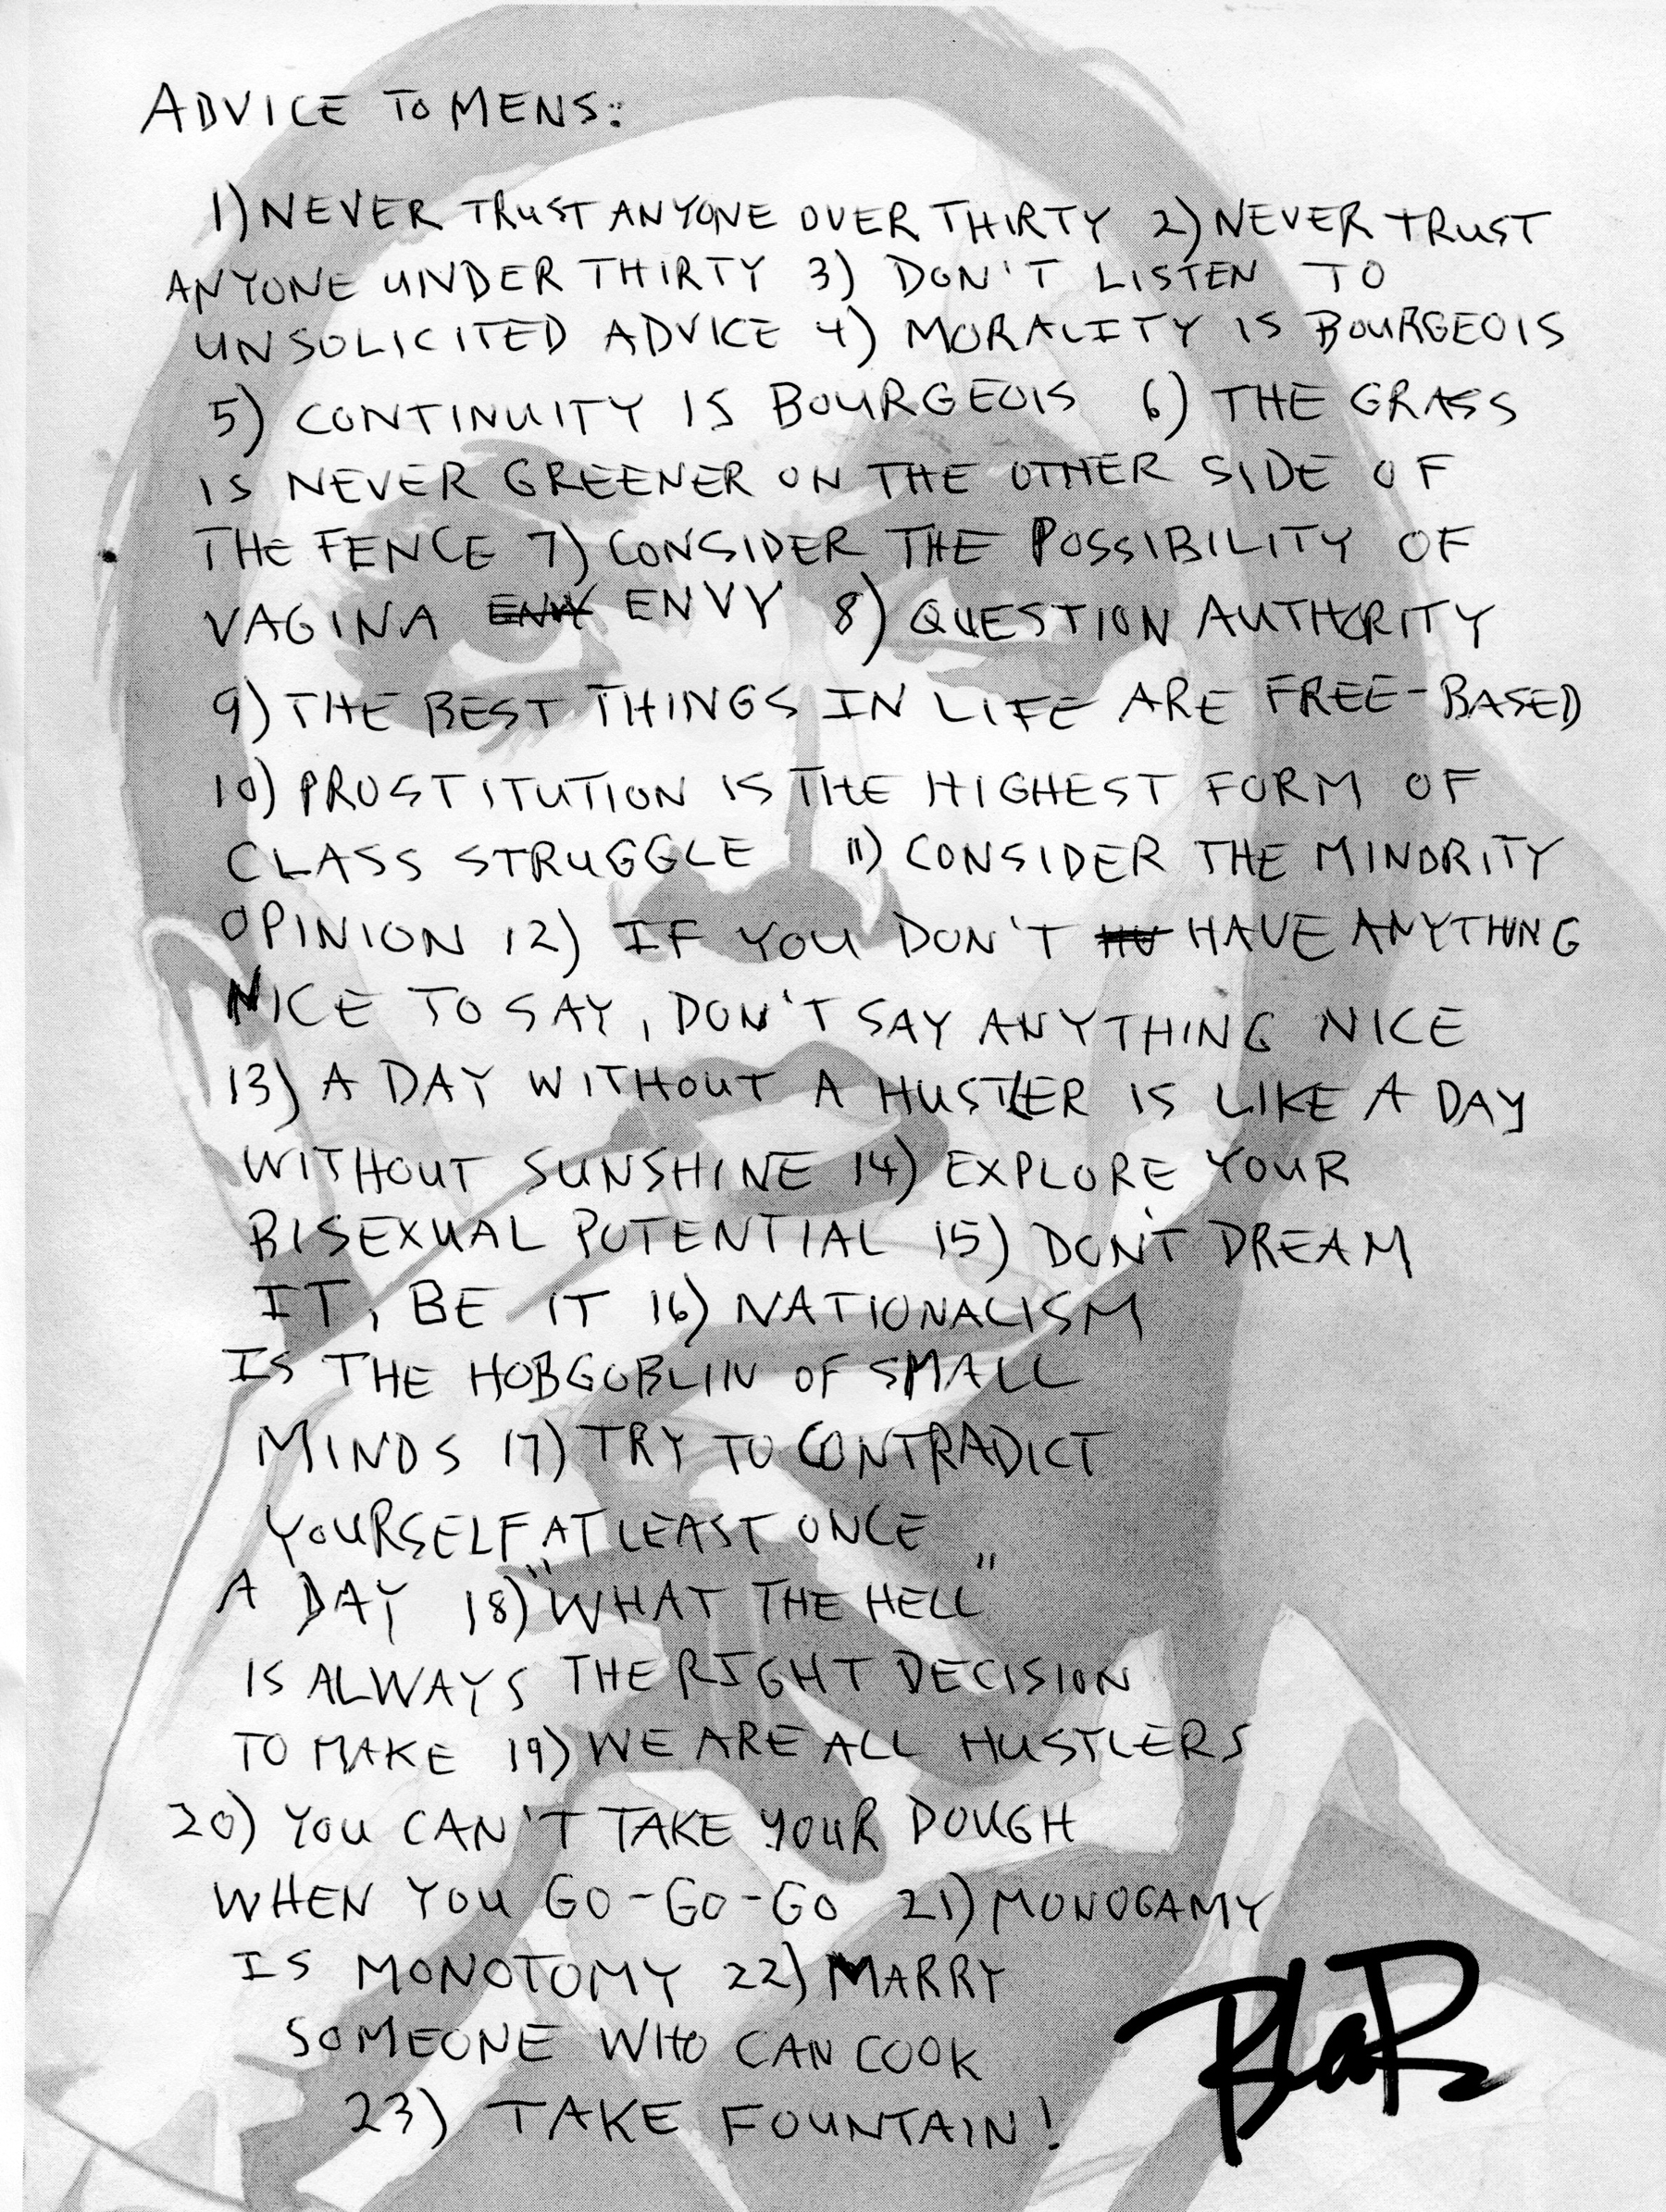 ADVICE TO MENS:
1) NEVER TRUST ANYONE OVER THIRTY 2) NEVER TRUST
ANYONE UNDER THIRTY 3) DON'T LISTEN TO
UNSOLICITED ADVICE 4) MORALITY IS BOURGEOIS
5) CONTINUITY IS BOURGEOIS 6) THE GRASS
IS NEVER GREENER ON THE OTHER SIDE OF
THE FENCE 7) CONSIDER THE POSSIBILITY OF
VAGINA ENVY 8) QUESTION AUTHORITY
9) THE BEST THINGS IN LIFE ARE FREE-BASED
10) PROSTITUTION IS THE HIGHEST FORM OF
CLASS STRUGGLE 11) CONSIDER THE MINORITY
OPINION 12) IF YOU DON'T HAVE ANYTHING
NICE TO SAY, DON'T SAY ANYTHING NICE
13) A DAY WITHOUT A HUSTLER IS LIKE A DAY
WITHOUT SUNSHINE 14) EXPLORE YOUR
BISEXUAL POTENTIAL 15) DON'T DREAM
IT, BE IT 16) NATIONALISM
IS THE HOBGOBLIN OF SMALL
MINDS 17) TRY TO CONTRADICT
YOURSELF AT LEAST ONCE
A DAY 18) "WHAT THE HELL"
IS ALWAYS THE RIGHT DECISION
TO MAKE 19) WE ARE ALL HUSTLERS
20) YOU CAN'T TAKE YOUR DOUGH
WHEN YOU GO-GO-GO 21) MONOGAMY
IS MONOTOMY 22) MARRY
SOMEONE WHO CAN COOK
23) TAKE FOUNTAIN!